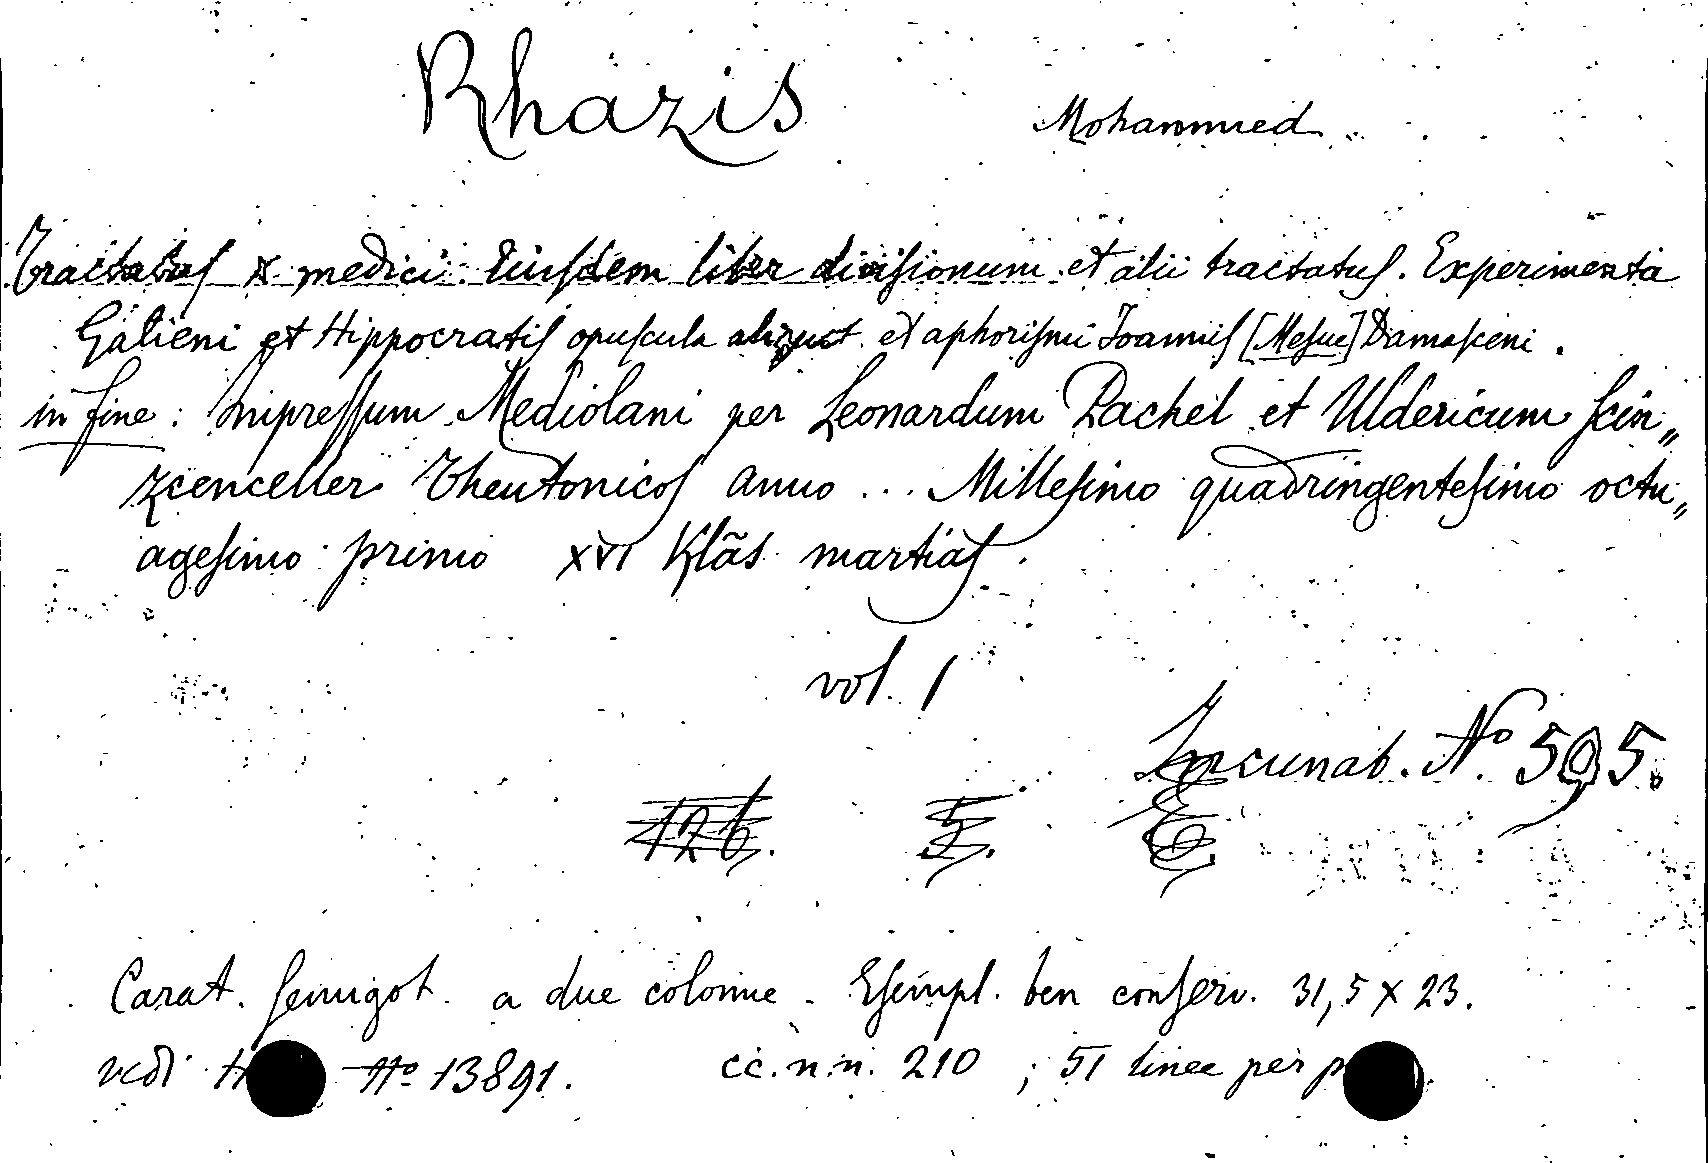 Rhazis Mohammed
Tractatus X medici. Eiusdem liber divisionum et alii tractatus. Experimenta
Galieni et Hippocratis opuscula et aphorismi Joannis [Mesue] Damasceni.
in fine: Impressum Mediolani per Leonardum Pachel et Uldericum Scin„
zcenceller Theutonicos anno ... Millesimo quadringentesimo octu„
agesimo primo XVI Klãs martias.
vol. 1
Incunab. Nº 595.
126. 5.
Carat. semigot. a due colonne. Esempl. ben conserv. 31,5 x 23.
vedi Nº 13891. cc. n.n. 210 ; 51 linee per